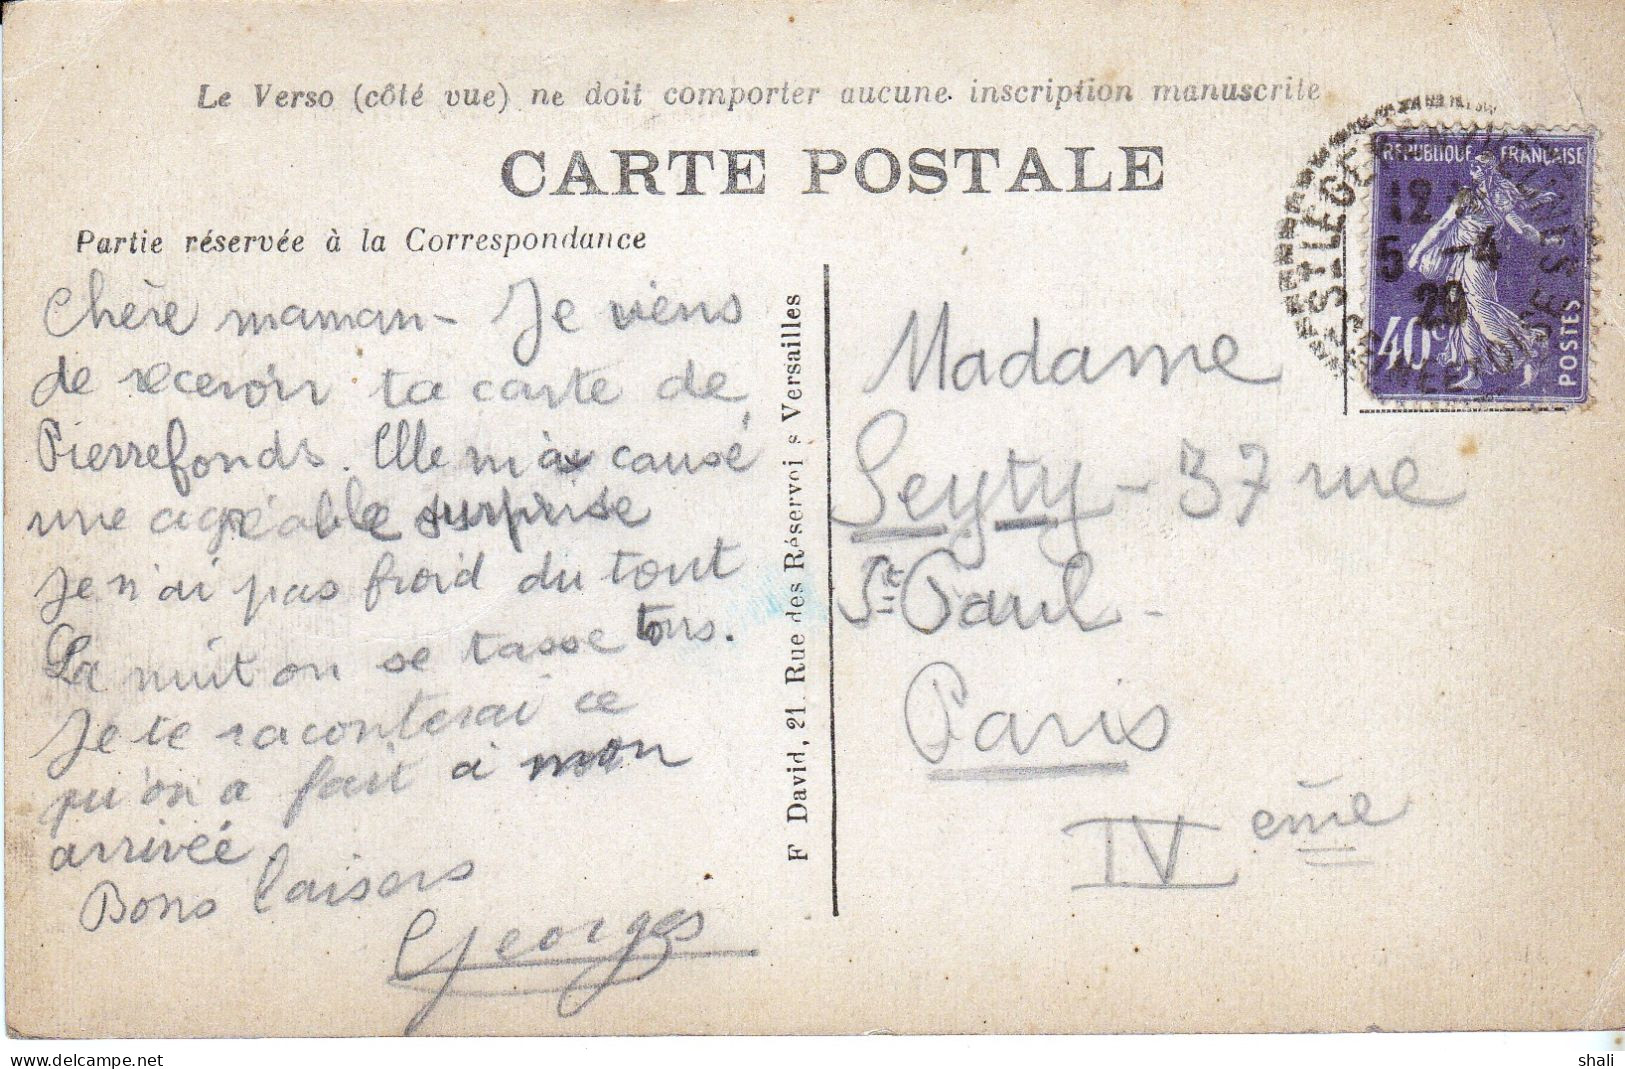 Le Verso (côté vue) ne doit comporter aucune inscription manuscrite
CARTE POSTALE
Partie réservée à la Correspondance
Chère maman - Je viens
de recevoir ta carte de
Pierrefonds. Elle m'a causé
une agréable surprise
Je n'ai pas froid du tout
La nuit on se tasse tous.
Je te raconterai ce
qu'on a fait à mon
arrivée.
Bons baisers
Georges
F David, 21 Rue des Réservoi s Versailles
Madame
Seyty - 37 rue
St Paul -
Paris
IV eme
REPUBLIQUE FRANÇAISE
40c
POSTES
12
5 -4
29
ST LEGER
SEINE ET OISE
www.delcampe.net
shali